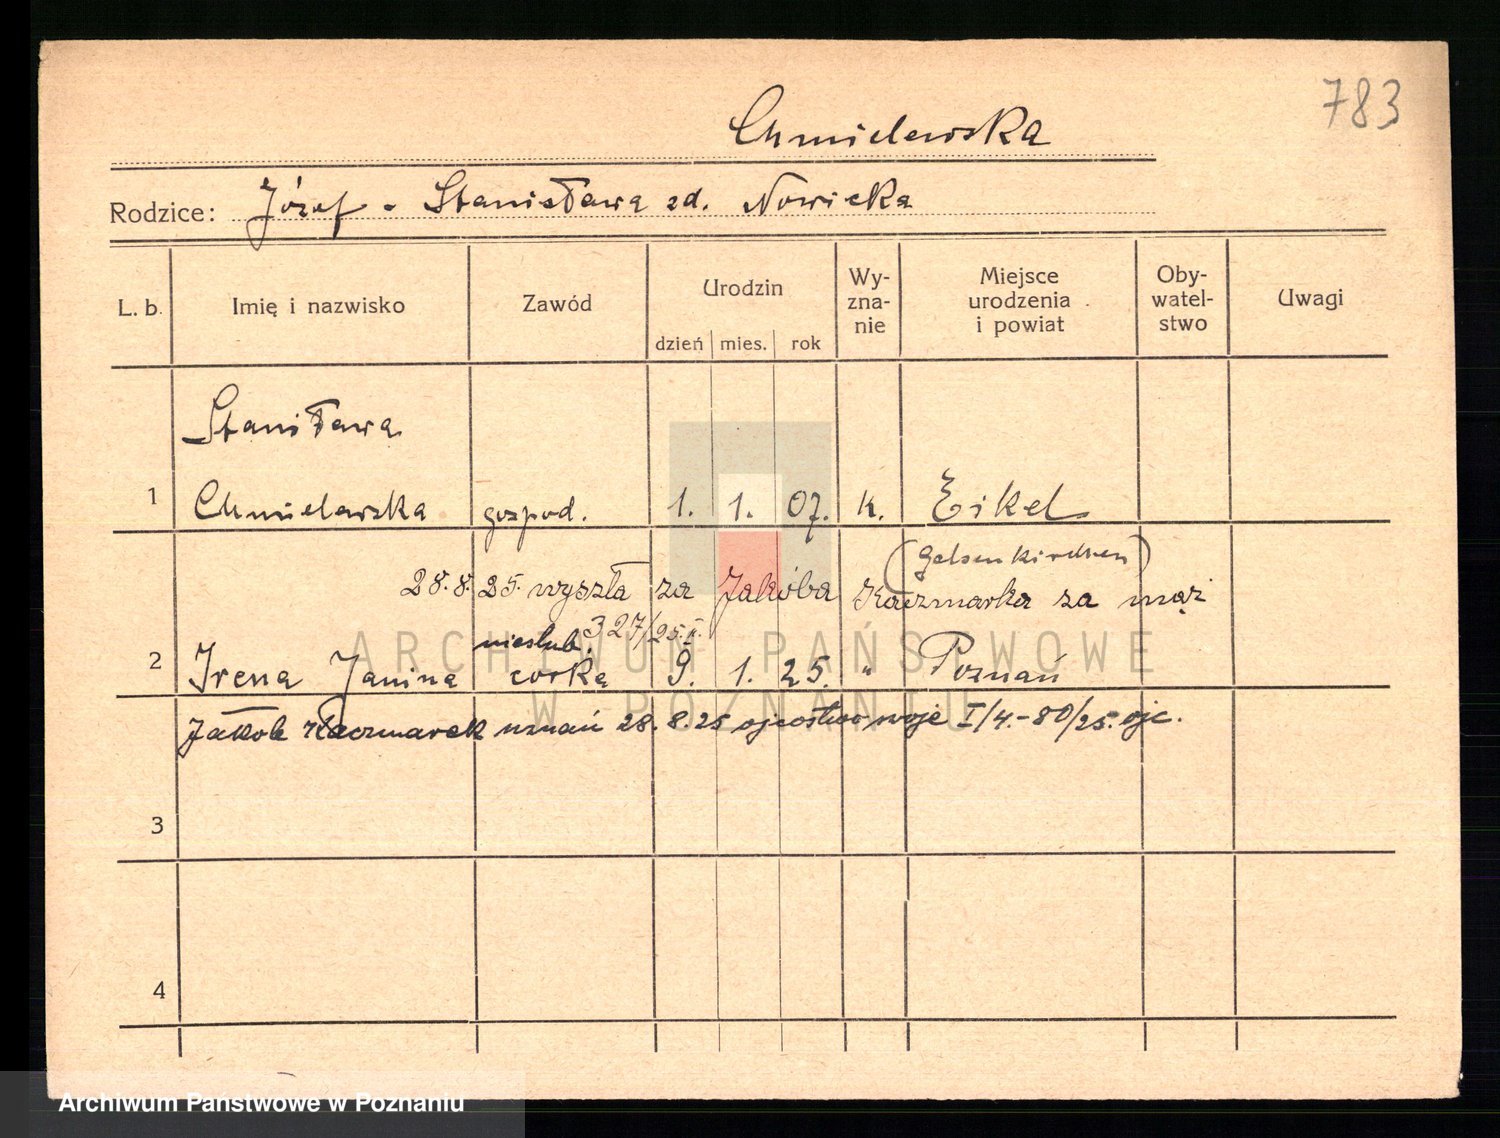 783
Chmielewska
Rodzice: Józef - Stanisława zd. Nowicka
L. b. Imię i nazwisko Zawód Urodzin dzień mies. rok Wy-zna-nie Miejsce urodzenia i powiat Oby-watel-stwo Uwagi
Stanisława
1 Chmielewska gospod. 1. 1. 07. k. Eikel
(Gelsenkirchen)
28.8.25. wyszła za Jakóba Kaczmarka za mąż
327/25.II.
nieślub.
2 Irena Janina córka 9. 1. 25. " Poznań
Jakob Kaczmarek uznał 28.8.25 ojcostwo swoje I/4.-80/25. ojc.
3
4
ARCHIWUM PAŃSTWOWE
W POZNANIU
Archiwum Państwowe w Poznaniu